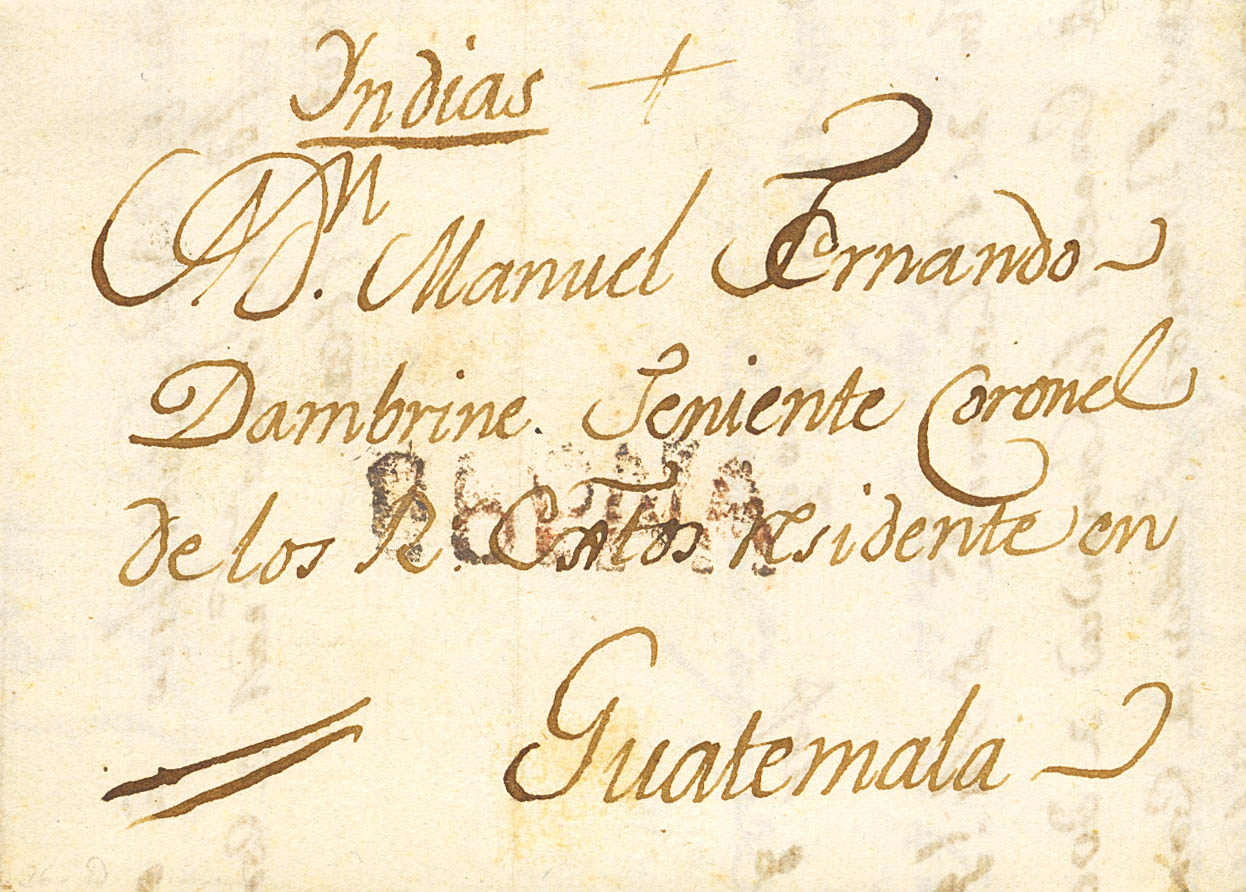 Indias +
A Dn. Manuel Fernando
Dambrine. Teniente Coronel
de los R. Extos residente en
Guatemala